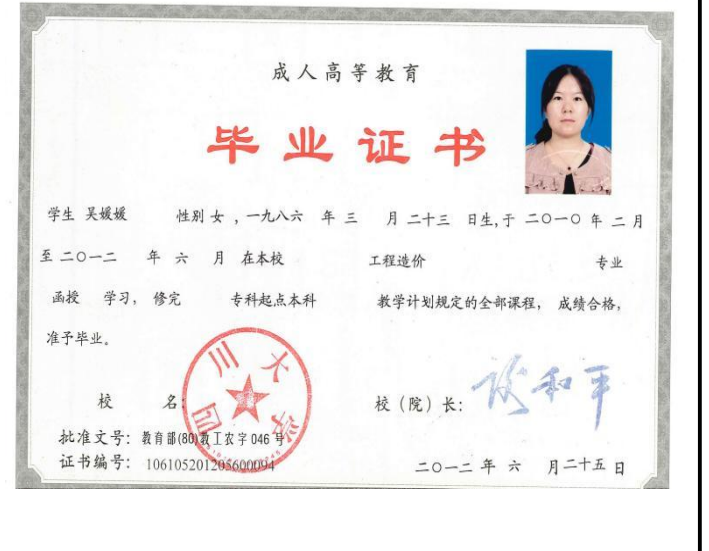 成人高等教育
毕业证书
学生 吴媛媛 性别 女 , 一九八六 年 三 月 二十三 日生,于 二○一○ 年 二 月
至 二○一二 年 六 月 在本校 工程造价 专业
函授 学习, 修完 专科起点本科 教学计划规定的全部课程, 成绩合格,
准予毕业。
四川大学
校 名: 校（院）长: 谈和平
批准文号: 教育部(80)教工农字 046 号
证书编号: 106105201205600094 二○一二 年 六 月二十五 日